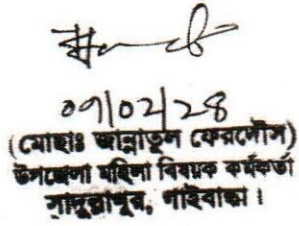 ০৭/০২/২৪
(মোছাঃ জান্নাতুল ফেরদৌস)
উপজেলা মহিলা বিষয়ক কর্মকর্তা
সাদুল্লাপুর, গাইবান্ধা।